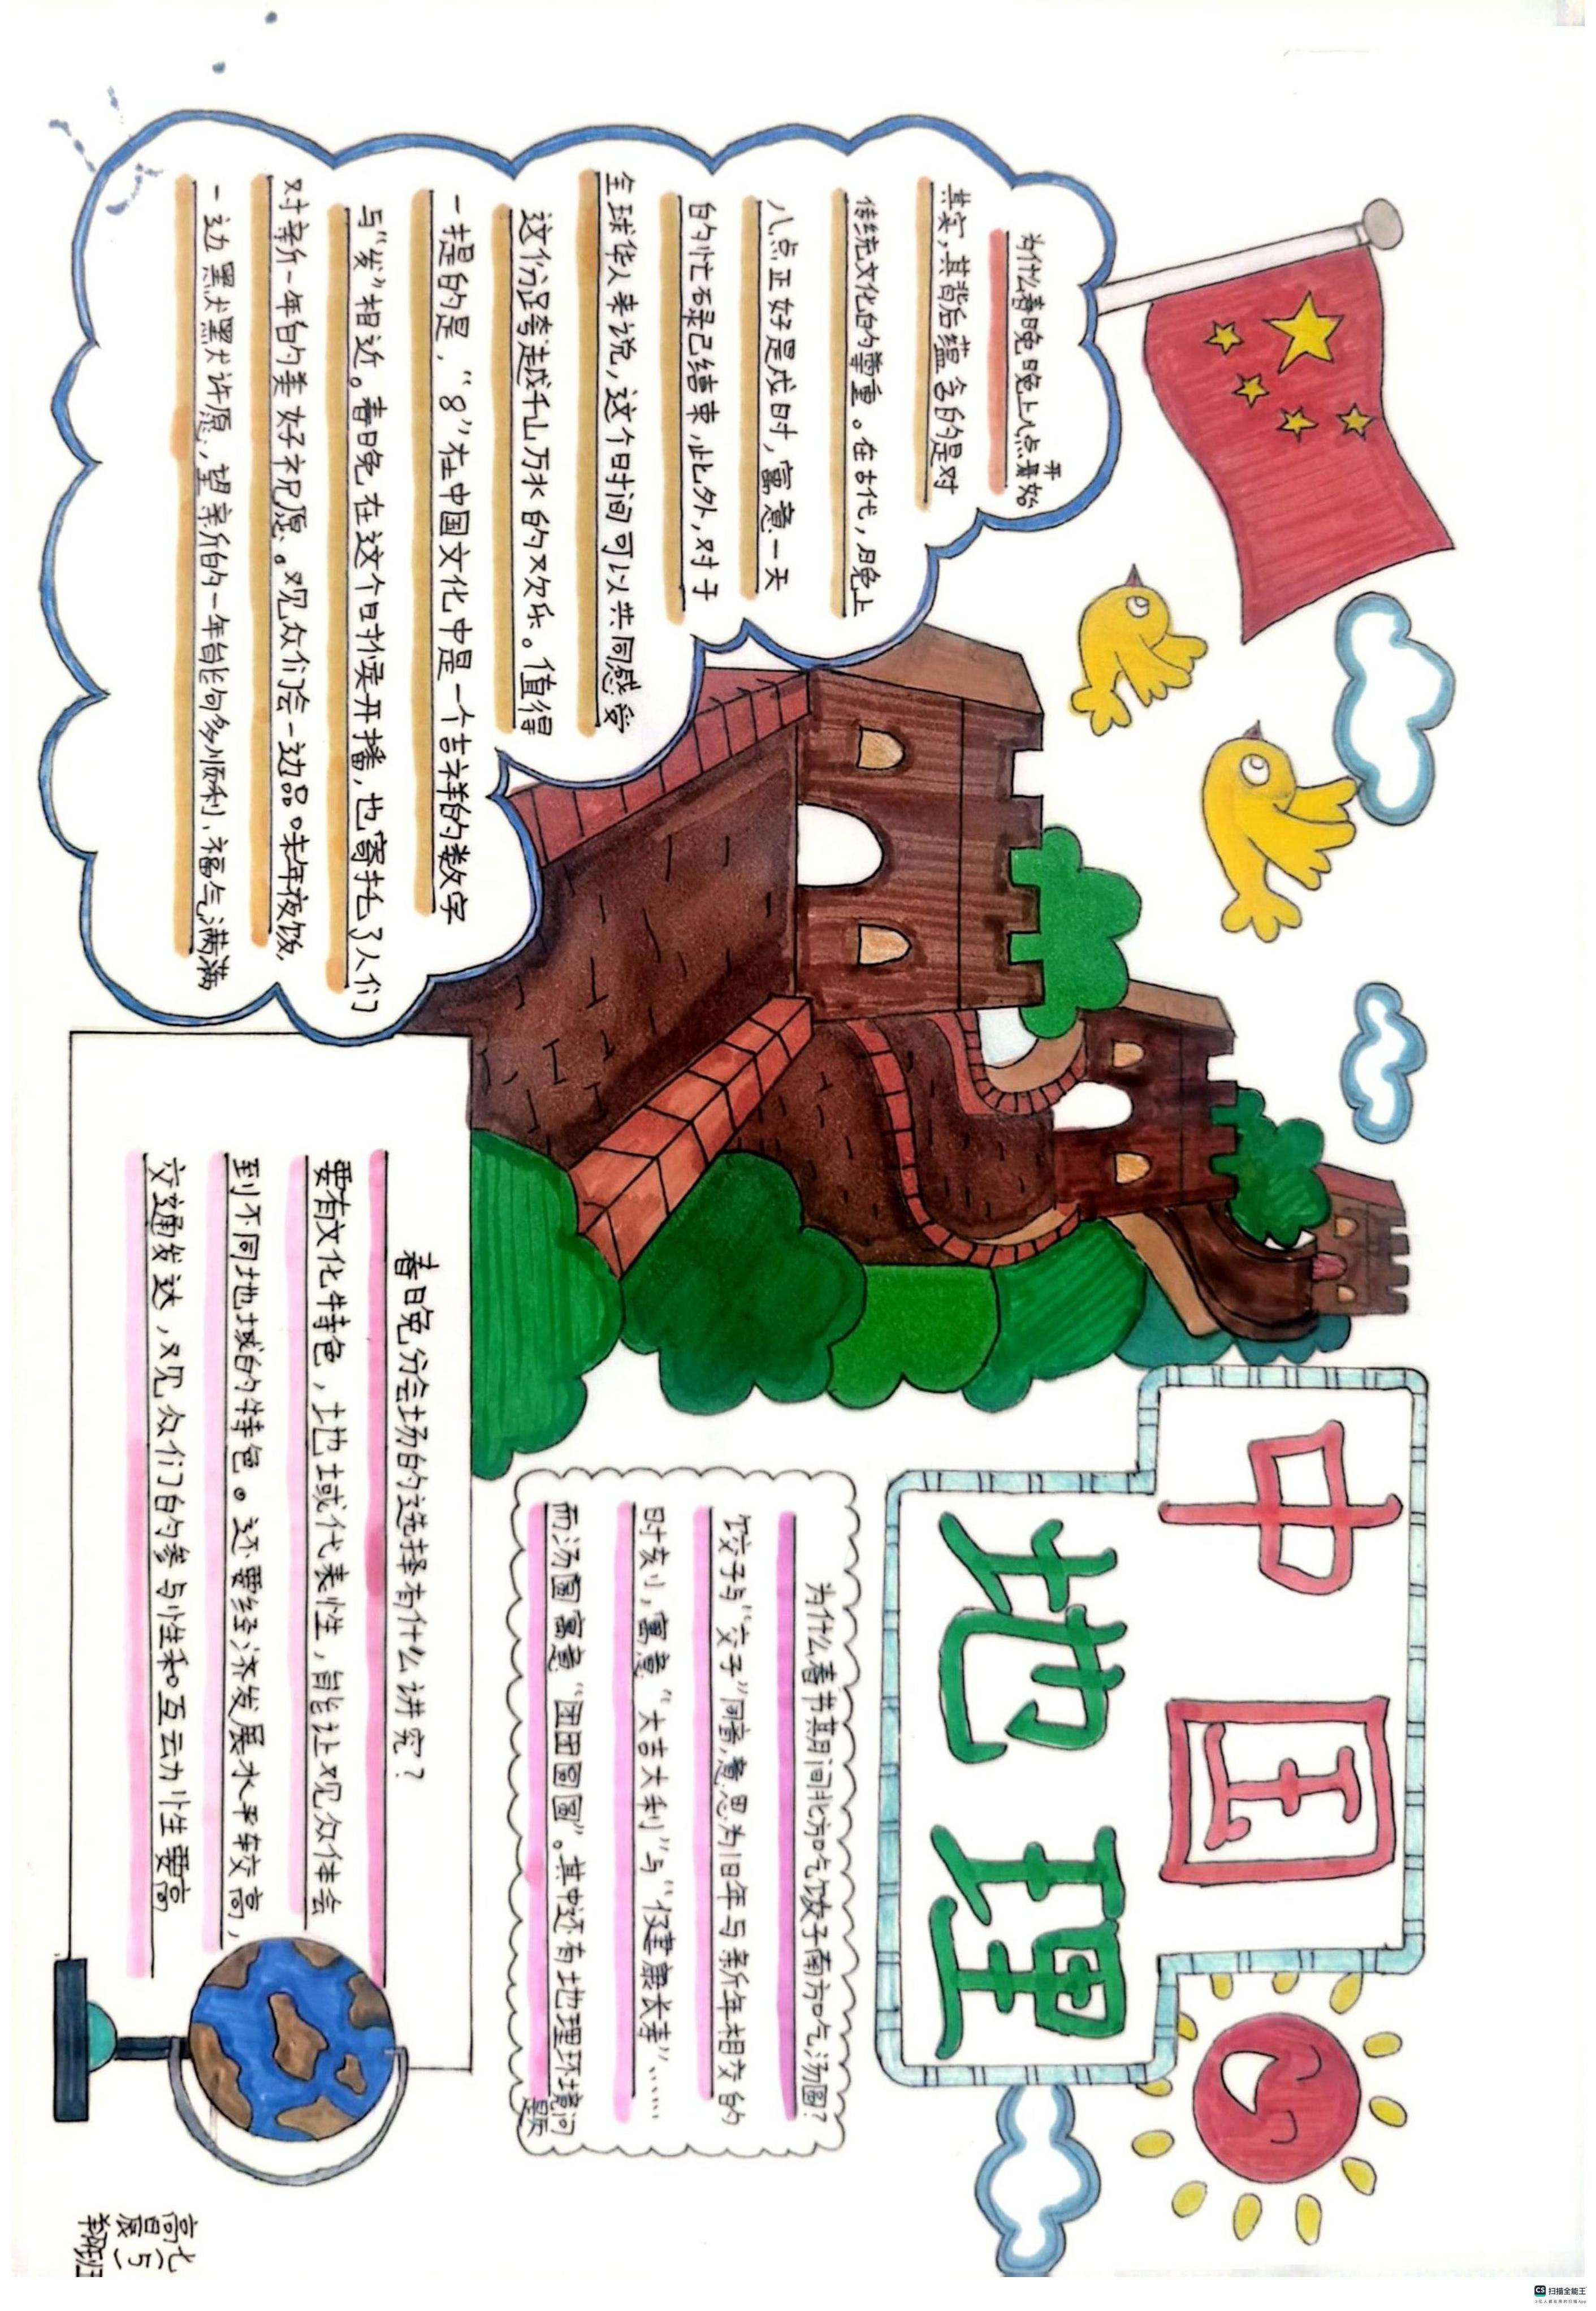 中国
地理
为什么春晚晚上八点开始
其实，其背后蕴含的是对
传统文化的尊重。在古代，晚上
八点正好是戌时，寓意一天
的忙碌已结束，此外，对于
全球华人来说，这个时间可以共同感受
这份跨越千山万水的欢乐。值得
一提的是，“8”在中国文化中是一个吉祥的数字
与“发”相近。春晚在这个时候开播，也寄托了人们
对新一年的美好祝愿。观众们会一边品味年夜饭，
一边默默许愿，望新的一年能够多顺利、福气满满
为什么春节期间北方吃饺子南方吃汤圆？
饺子与“交子”同音，意思为旧年与新年相交的
时刻，寓意“大吉大利”与“健康长寿”……
而汤圆寓意“团团圆圆”。其中还有地理环境问题
春晚分会场的选择有什么讲究？
要有文化特色，地域代表性，能让观众体会
到不同地域的特色。还要经济发展水平较高，
交通发达，观众们的参与性和互动性要高
七(5)班
高晨
扫描全能王
3亿人都在用的扫描App